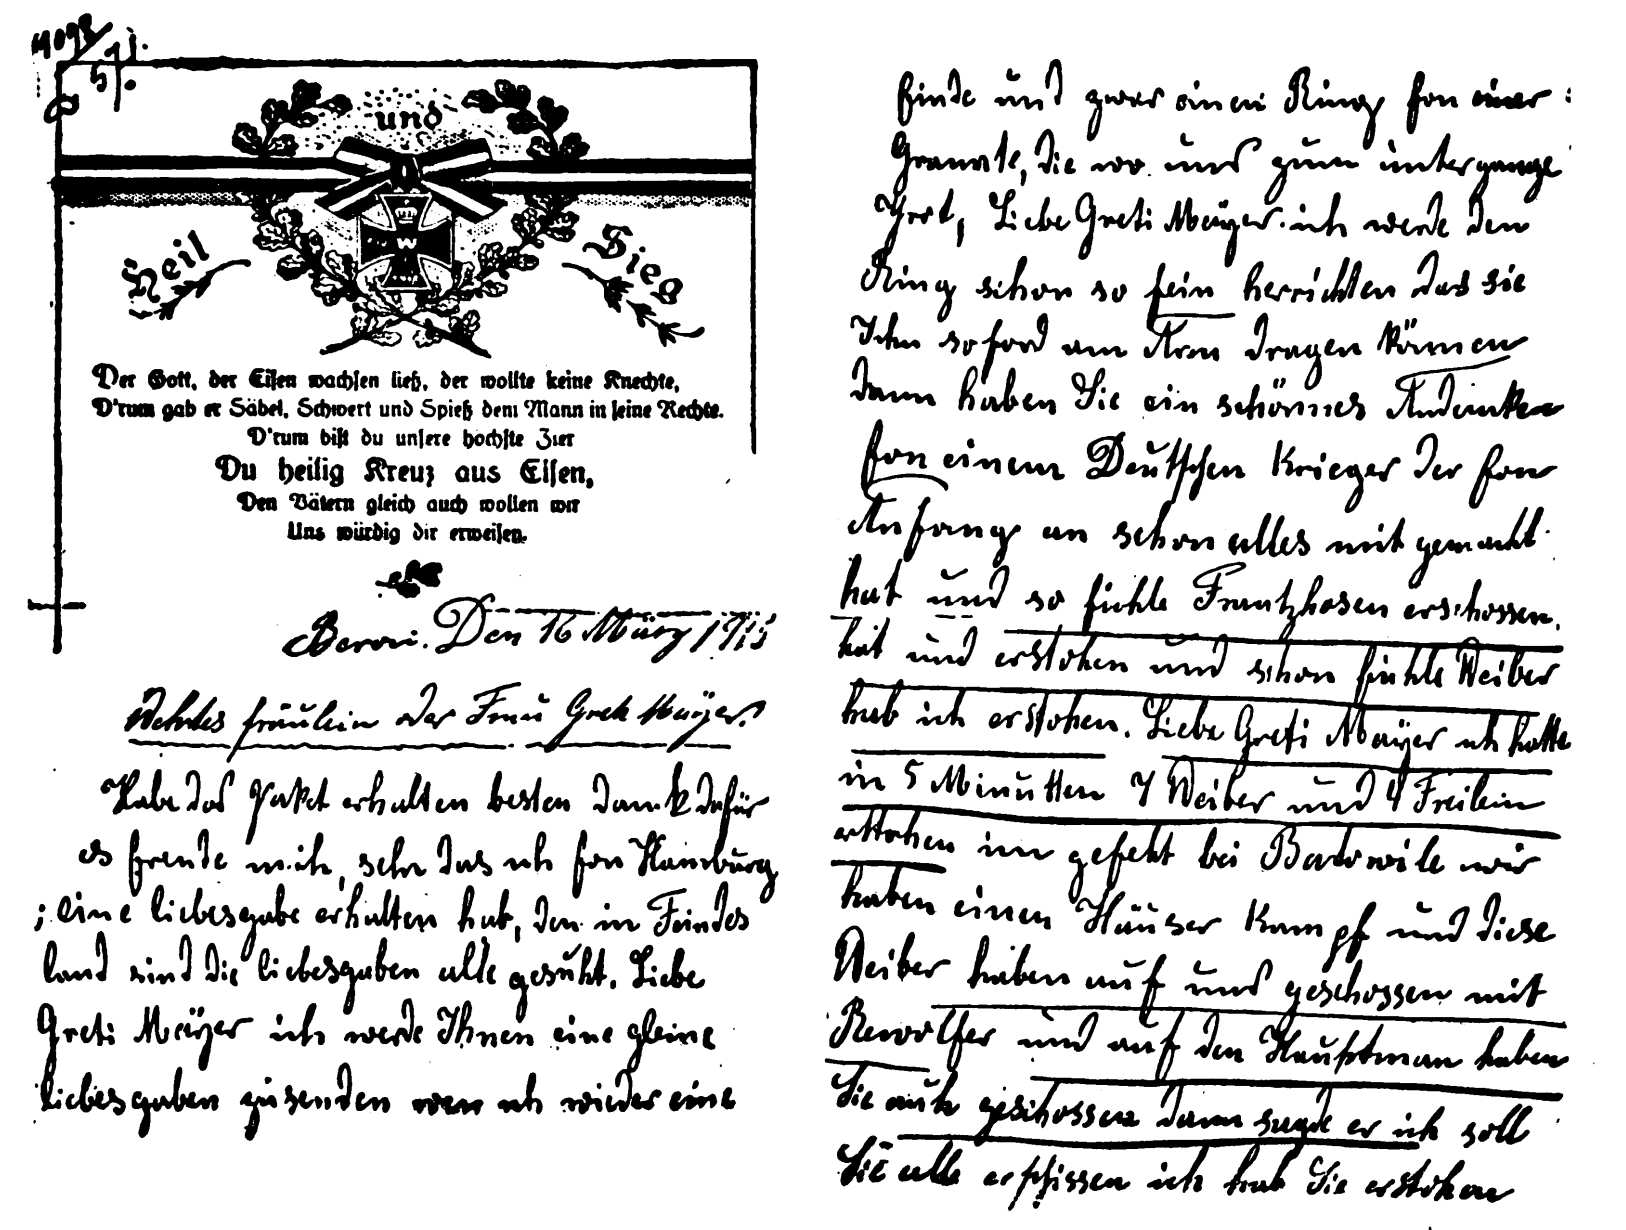 und
Heil
Sieg
Der Gott, der Eisen wachsen ließ, der wollte keine Knechte,
D'rum gab er Säbel, Schwert und Spieß dem Mann in seine Rechte.
D'rum bist du unsere höchste Zier
Du heilig Kreuz aus Eisen,
Den Vätern gleich auch wollen wir
Uns würdig dir erweisen.
Den 16 März 1915
Wehrtes fräulein oder Frau Greti Mayer!
Habe das Paket erhalten besten Dank dafür
es freute mich, sehr das ich fon Hamburg
eine liebesgabe erhalten hab, den in Feindes
land sind die liebesgaben alle gesucht. Liebe
Greti Mayer ich werde Ihnen eine gleine
liebesgaben zusenden wen ich wieder eine
finde und zwar einen Ring fon einer
Granate, die wo uns zum untergange
Liebe Greti Mayer ich werde den
Ring schon so fein herrichten das sie
Ihn soford am Arm dragen können
dann haben Sie ein schönnes Andenken
fon einem Deutschen Krieger der fon
Anfang an schon alles mit gemacht
hat und so fichle Frantzhosen erschossen
hat und erstohen und schon fichle Weiber
hab ich erstohen. Liebe Greti Mayer ich hatte
in 5 Minutten 7 Weiber und 4 Freilein
erstohen im gefeht bei Batowile wir
haben einen Häuser Kampf und diese
Weiber haben auf uns geschossen mit
Rewolfer und auf den Hauptman haben
Sie auch geschossen dann sagde er ich soll
Sie alle erschissen ich hab Sie erstohen